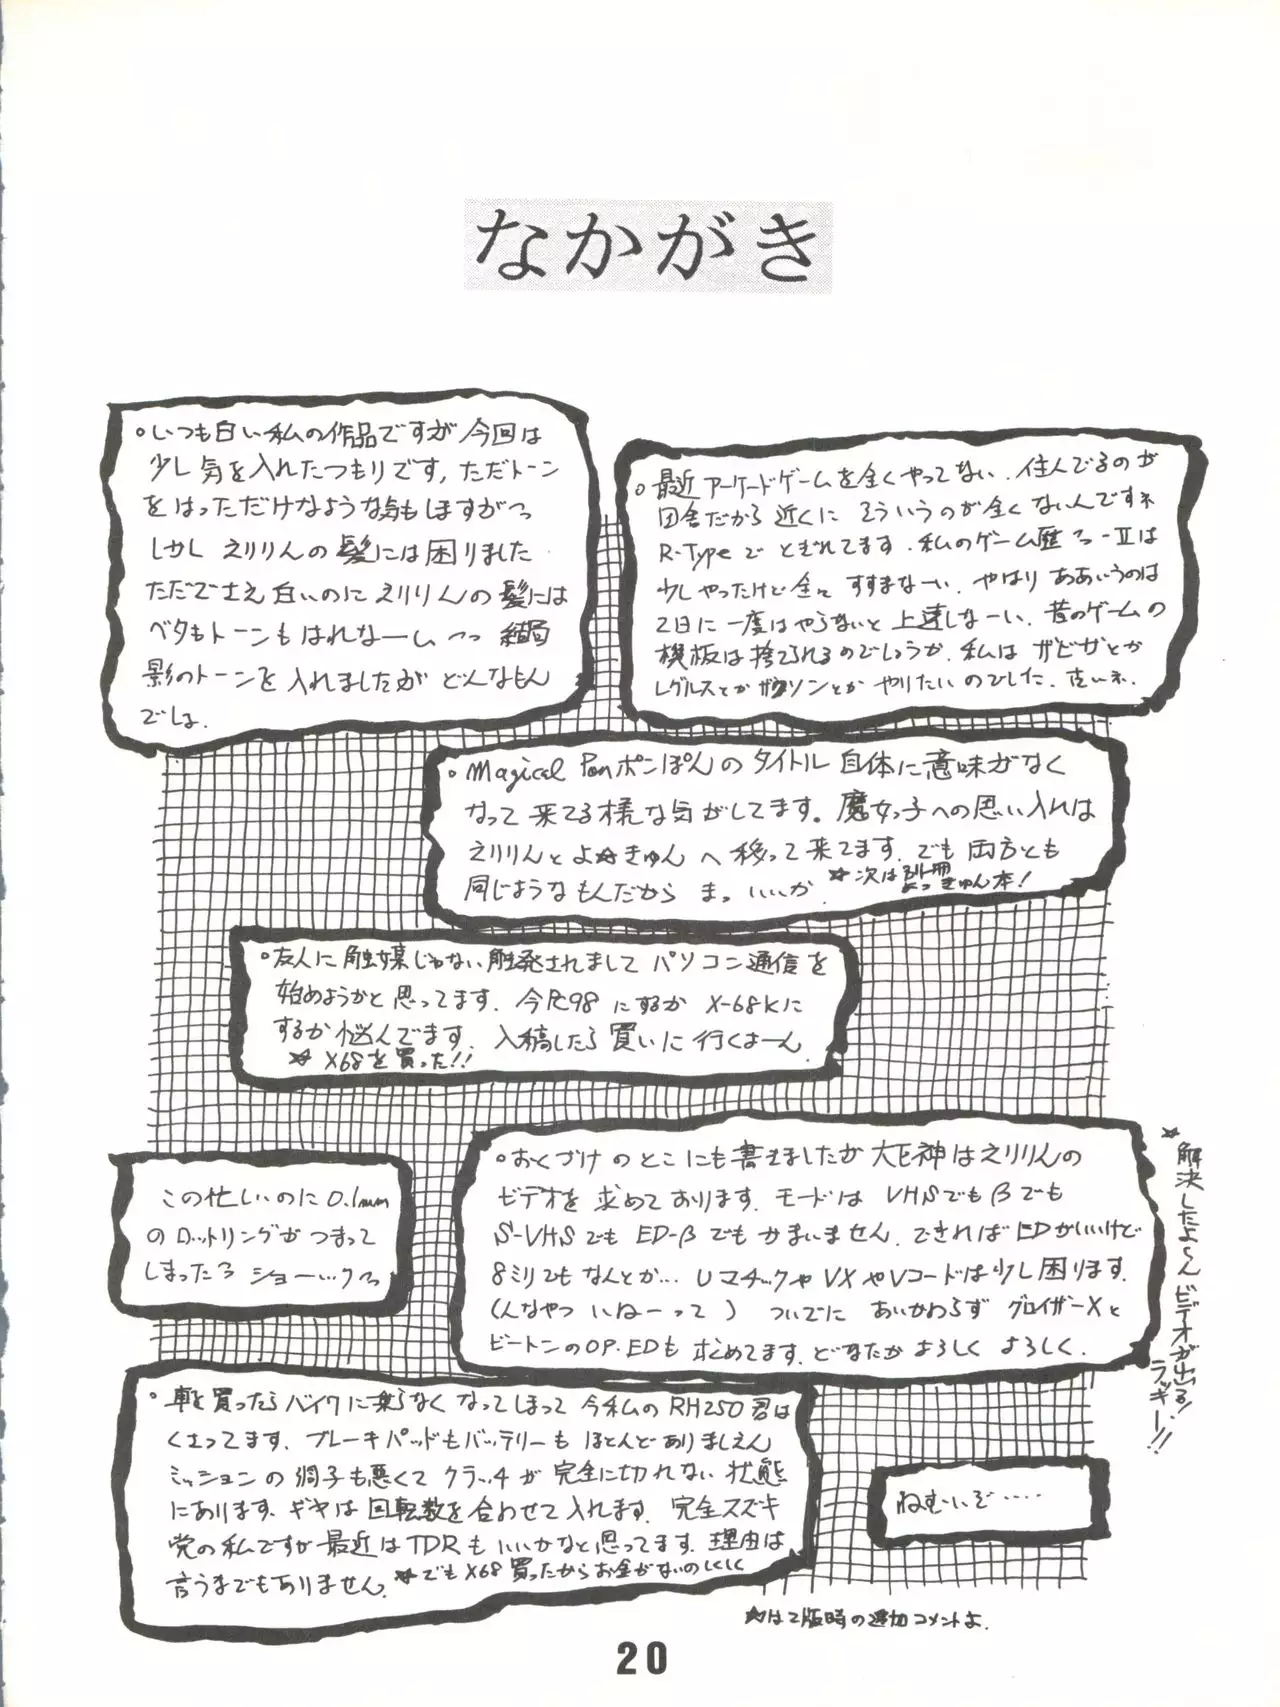 なかがき
○いつも白い私の作品ですが今回は
少し気を入れたつもりです,ただトーン
をはっただけなような気もしますがつ
しかしえりりんの髪には困りました
ただでさえ白いのにえりりんの髪には
ベタもトーンもはれなーい つつ 結局
影のトーンを入れましたが どんなもん
でしょ.
○最近アーケードゲームを全くやってない.住んでるのが
田舎だから近くに そういうのが全くないんですネ
R-Typeでとぎれてます.私のゲーム歴つ-Ⅱは
少しやったけど全々すすまなーい.やはりああいうのは
2日に一度はやらないと上達しなーい.昔のゲームの
機板は捨てられるのでしょうか.私はザビガとか
レグルスとかザクソンとかやりたいのでした.古いネ.
○Magical Ponポンぽんのタイトル自体に意味がなく
なって来てる様な気がしてます。魔女っ子への思い入れは
えりりんとよ☆きゅんへ移って来てます.でも両方とも
同じようなもんだから ま。いいか. ☆次は別冊よっきゅん本!
○友人に触媒じゃない触発されまして パソコン通信を
始めようかと思ってます.今PC98にするか X-68Kに
するか悩んでます.入稿したら買いに行くよーん.
☆X68を買った!!
○おくづけのとこにも書きましたが大巨神はえりりんの
ビデオを求めております.モードは VHSでもβでも
S-VHSでも ED-βでもかまいません.できればEDがいいけど
8ミリでもなんとか… Uマチックや VXやVコードは少し困ります.
(んなやつ いねーって) ついでに あいかわらず グロイザーXと
ビートンのOP.EDも求めてます.どなたかよろしくよろしく.
☆解決したよ~ん ビデオが出る!ラッキー!!
この忙しいのに0.1mm
のロットリングがつまって
しまったろ ショーックつ
○車を買ったらバイクに乗らなくなってしまって今私のRH250君は
くさってます.ブレーキパッドもバッテリーもほとんどありましぇん
ミッションの調子も悪くてクラッチが完全に切れない状態
にあります.ギヤは回転数を合わせて入れます.完全スズキ
党の私ですが最近はTDRもいいかなと思ってます.理由は
言うまでもありません. ☆でもX68買ったからお金がないのしくしく
ねむいぞ……
☆は2版時の追加コメントよ.
20